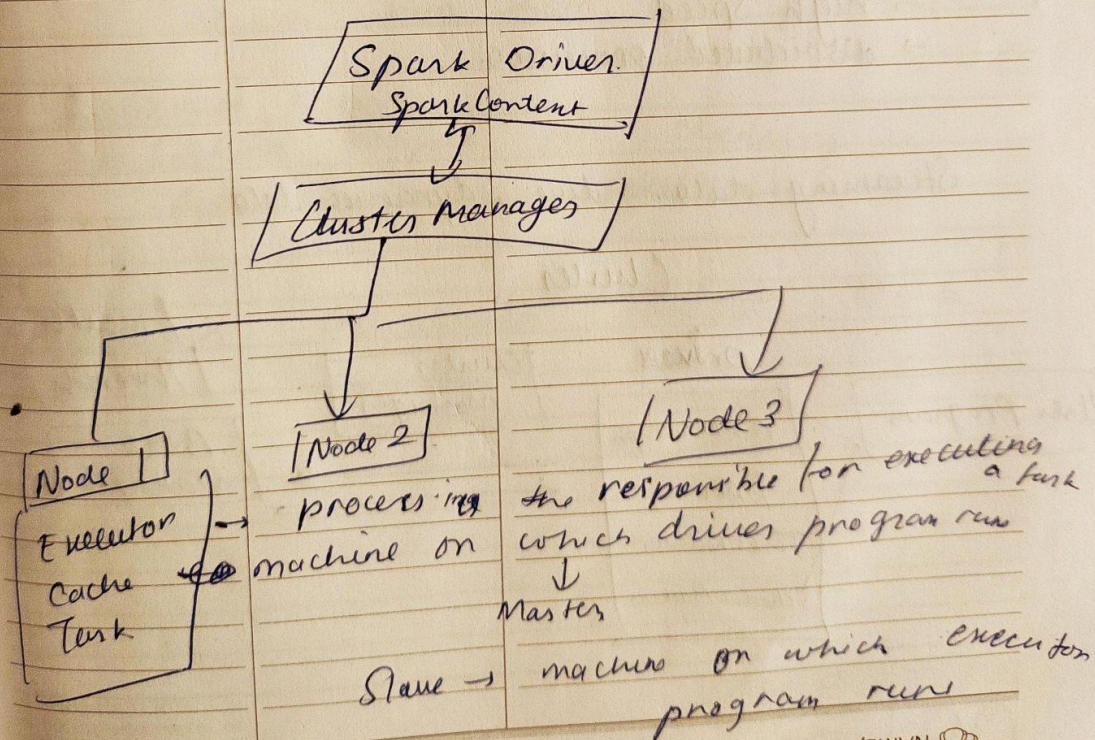 Spark Driver
SparkContext
Cluster Manager
Node 1
Node 2
Node 3
Executor
Cache
Task
→ processing the responsible for executing a task
machine on which driver program run
↓
Master
Slave → machine on which executor
program runs